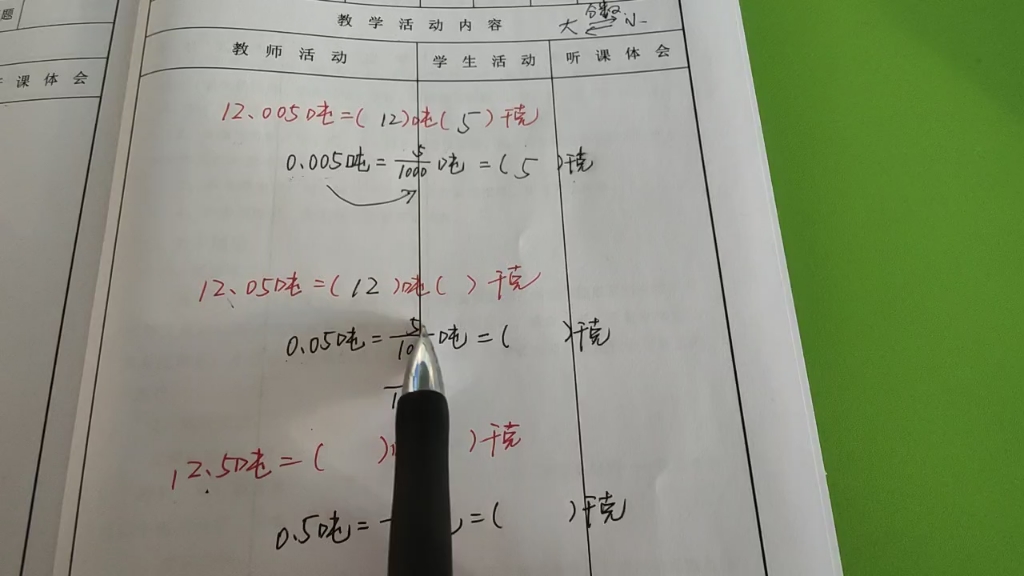 题
教 学 活 动 内 容
大
课 体 会
教 师 活 动
学 生 活 动
听 课 体 会
12.005吨=( 12)吨( 5 ) 千克
0.005吨=5/1000吨=( 5 )千克
12.05吨=( 12 )吨( ) 千克
0.05吨=5/10 吨=( )千克
12.5吨=( ) ) 千克
0.5吨= =( )千克